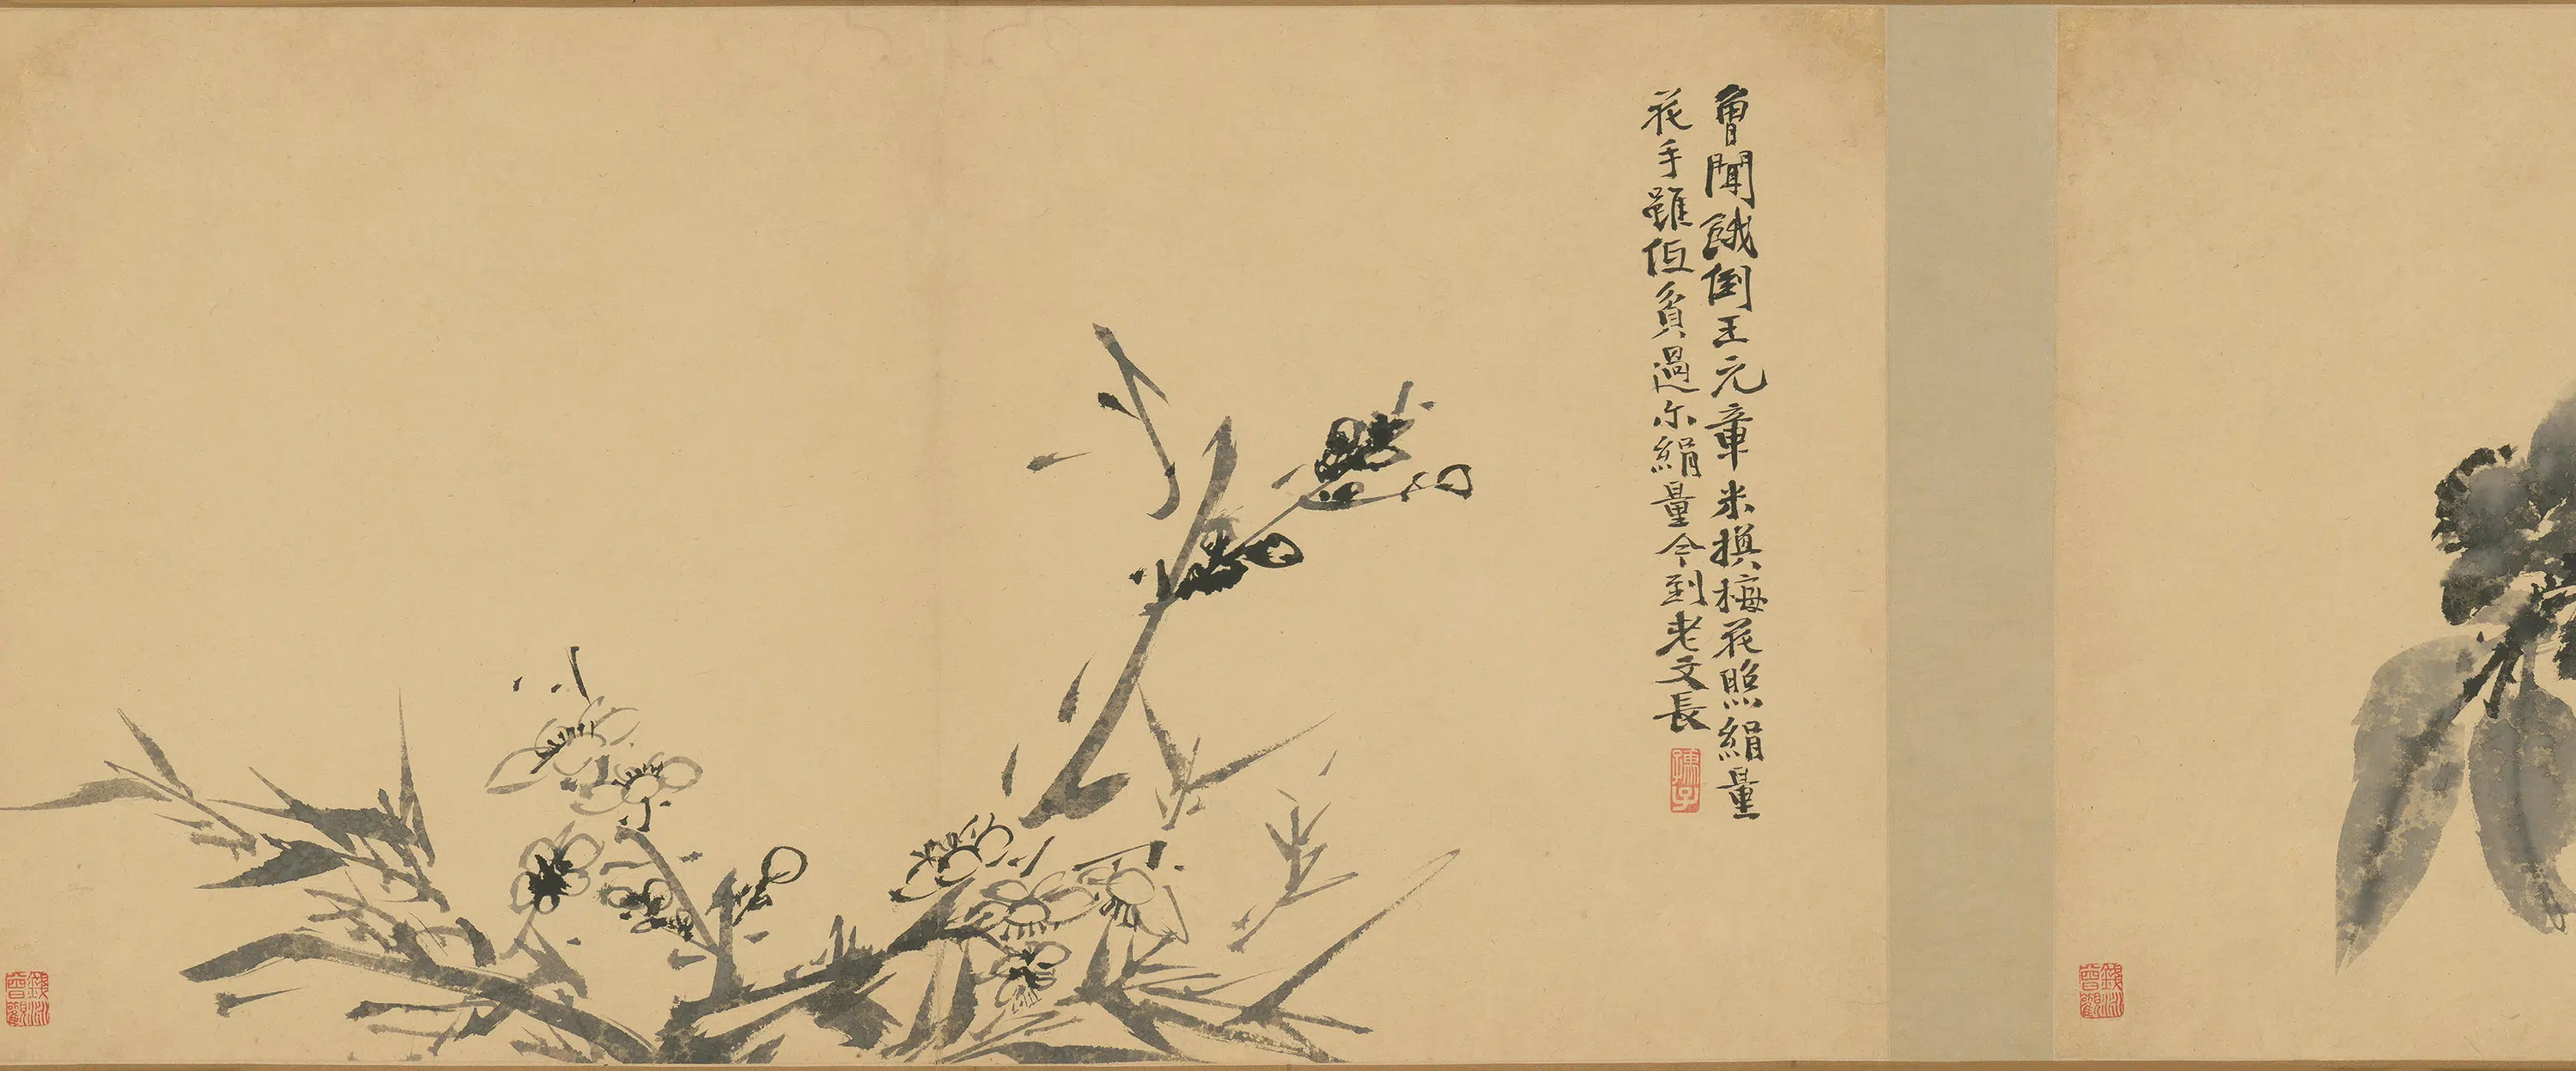 曾聞餓倒王元章米換梅花照絹量
花手雖低貧過尔絹量今到老文長
錢氏
曾觀
錢氏
曾觀